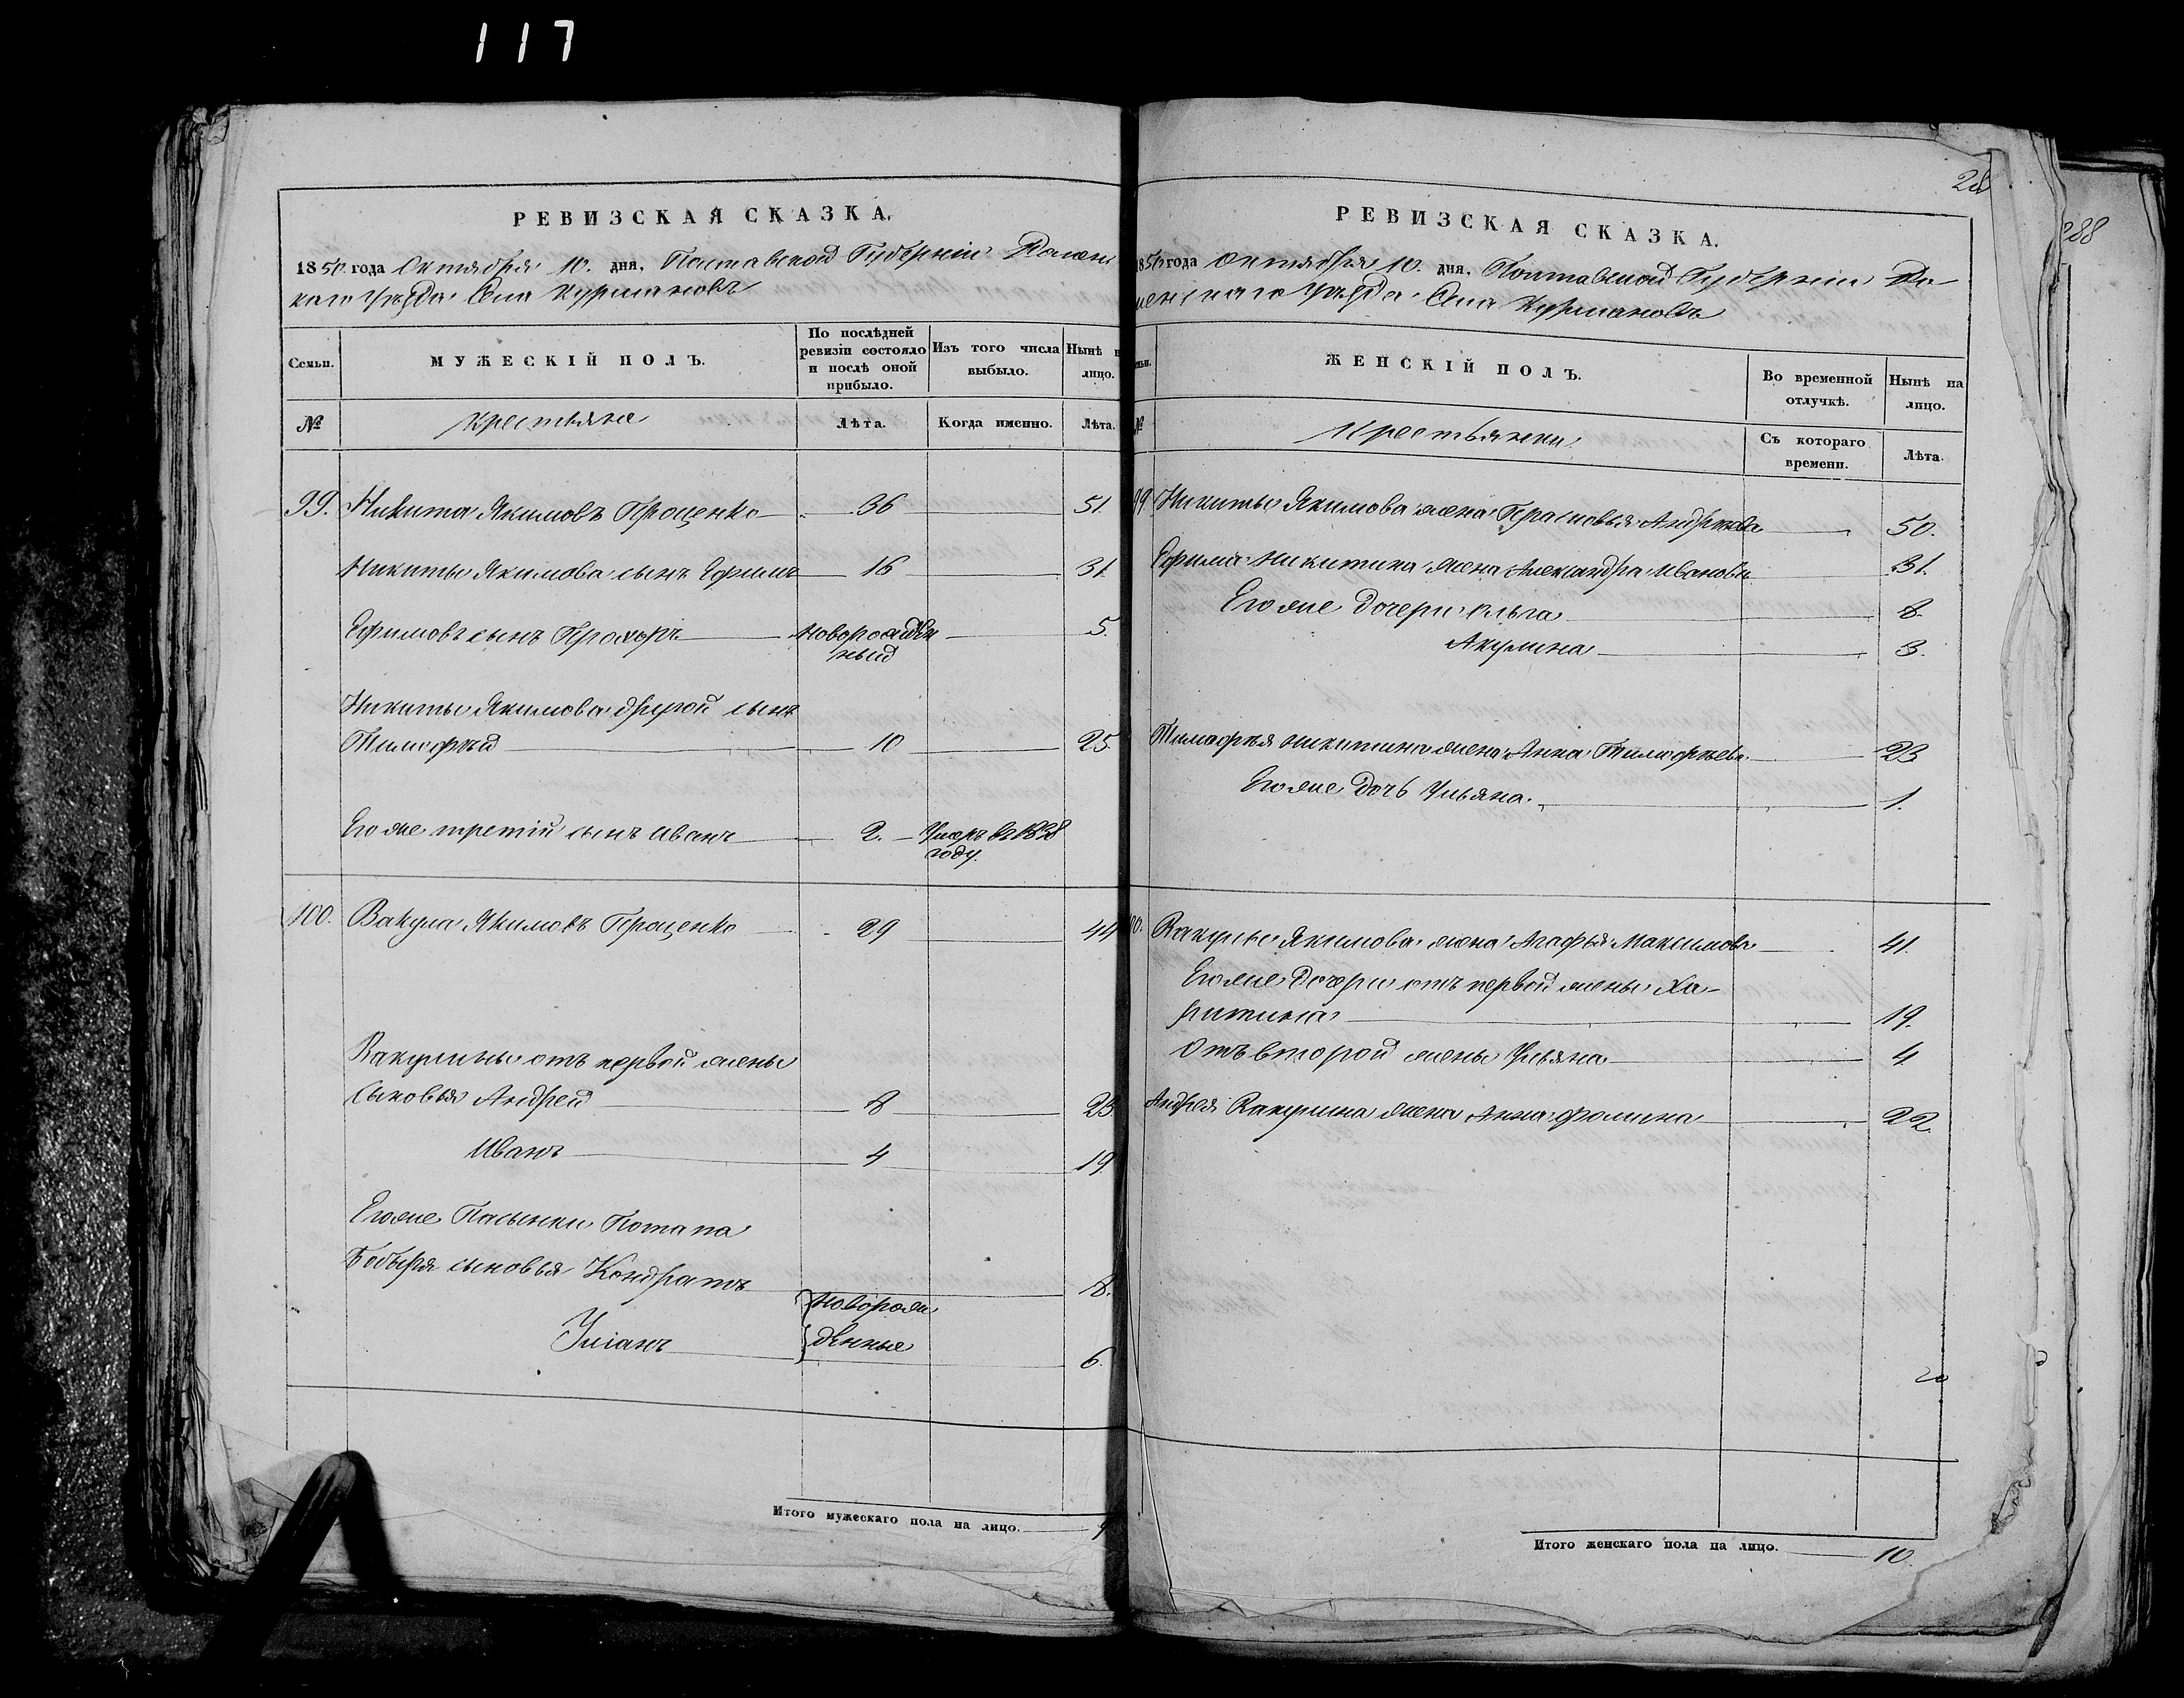 117
РЕВИЗСКАЯ СКАЗКА.
1850 года Октября 10. дня, Полтавской Губерніи Ромен
скаго Уѣзда Села Курмановъ
Семьи.
МУЖЕСКІЙ ПОЛЪ.
По послѣдней
ревизіи состояло
и послѣ оной
прибыло.
Изъ того числа
выбыло.
Нынѣ н
лицо.
№
Крестьяне
Лѣта.
Когда именно.
Лѣта.
99. Никита Якимовъ Проценко 36 51.
Никиты Якимова сынъ Ефимъ 16 31.
Ефимовъ сынъ Прохоръ Новорожден 5.
ный
Никиты Якимова другой сынъ
Тимофѣй 10 25.
Его же третій сынъ Иванъ 2. Умеръ въ 1838
году.
100. Вакула Якимовъ Проценко 29 44
Вакулины отъ первой жены
сыновья Андрей 8 23
Иванъ 4 19.
Его же Пасынки Потапа
сыновья Кондратъ 8.
Новорож
Уліанъ денные 6.
Итого мужескаго пола на лицо. 9
РЕВИЗСКАЯ СКАЗКА.
1850 года Октября 10. дня, Полтавской Губерніи Ро-
менскаго Уѣзда Села Курмановъ
288
ЖЕНСКІЙ ПОЛЪ.
Во временной
отлучкѣ.
Нынѣ на
лицо.
№
Крестьянки
Съ котораго
времени.
Лѣта.
99. Никиты Якимова жена Прасковья Андреева 50.
Ефима Никитина жена Александра Иванова 31.
Его же Дочери Ольга 8.
Акулина 3.
Тимофѣя Никитина жена Анна Тимофѣева 23
Его же Дочь Ульяна. 1.
100. Вакулы Якимова жена Агафья Максимова 41.
Его же Дочери отъ первой жены Ха-
ритина 19.
Отъ второй жены Ульяна 4.
Андрея Вакулина жена Анна Фомина 22.
Итого женскаго пола на лицо. 10.